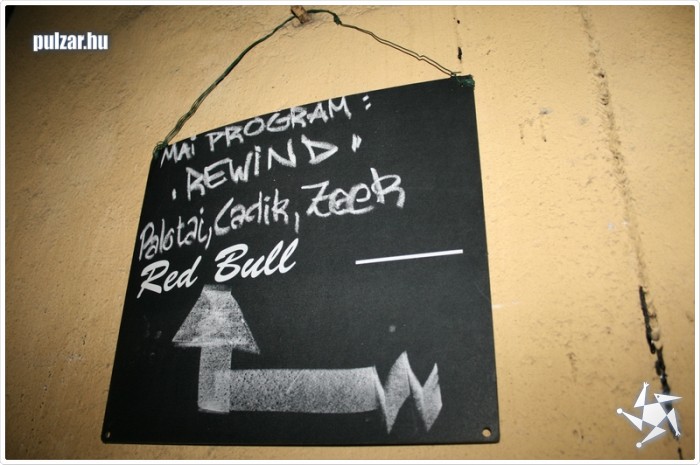 pulzar.hu
MAI PROGRAM:
"REWIND"
Palotai, Cadik, Zeek
Red Bull